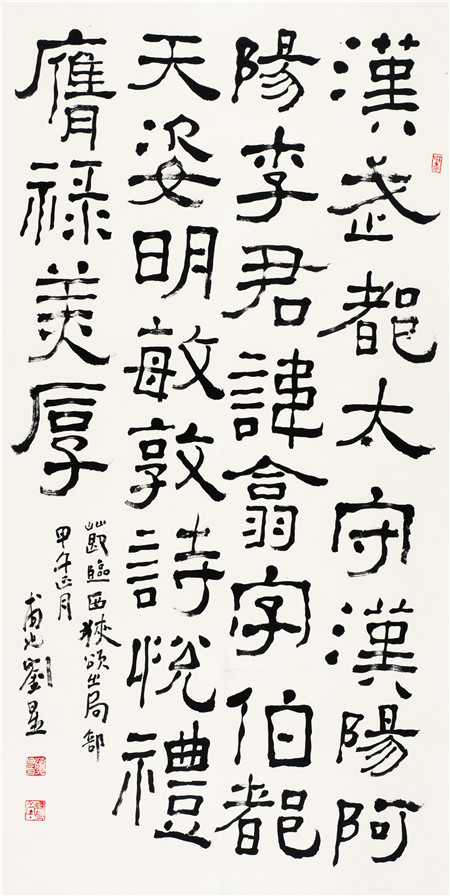 漢武都太守漢陽阿
陽李君諱翕字伯都
天姿明敏敦詩悅禮
膺祿美厚
臨西狹頌之局部
甲午正月
劉